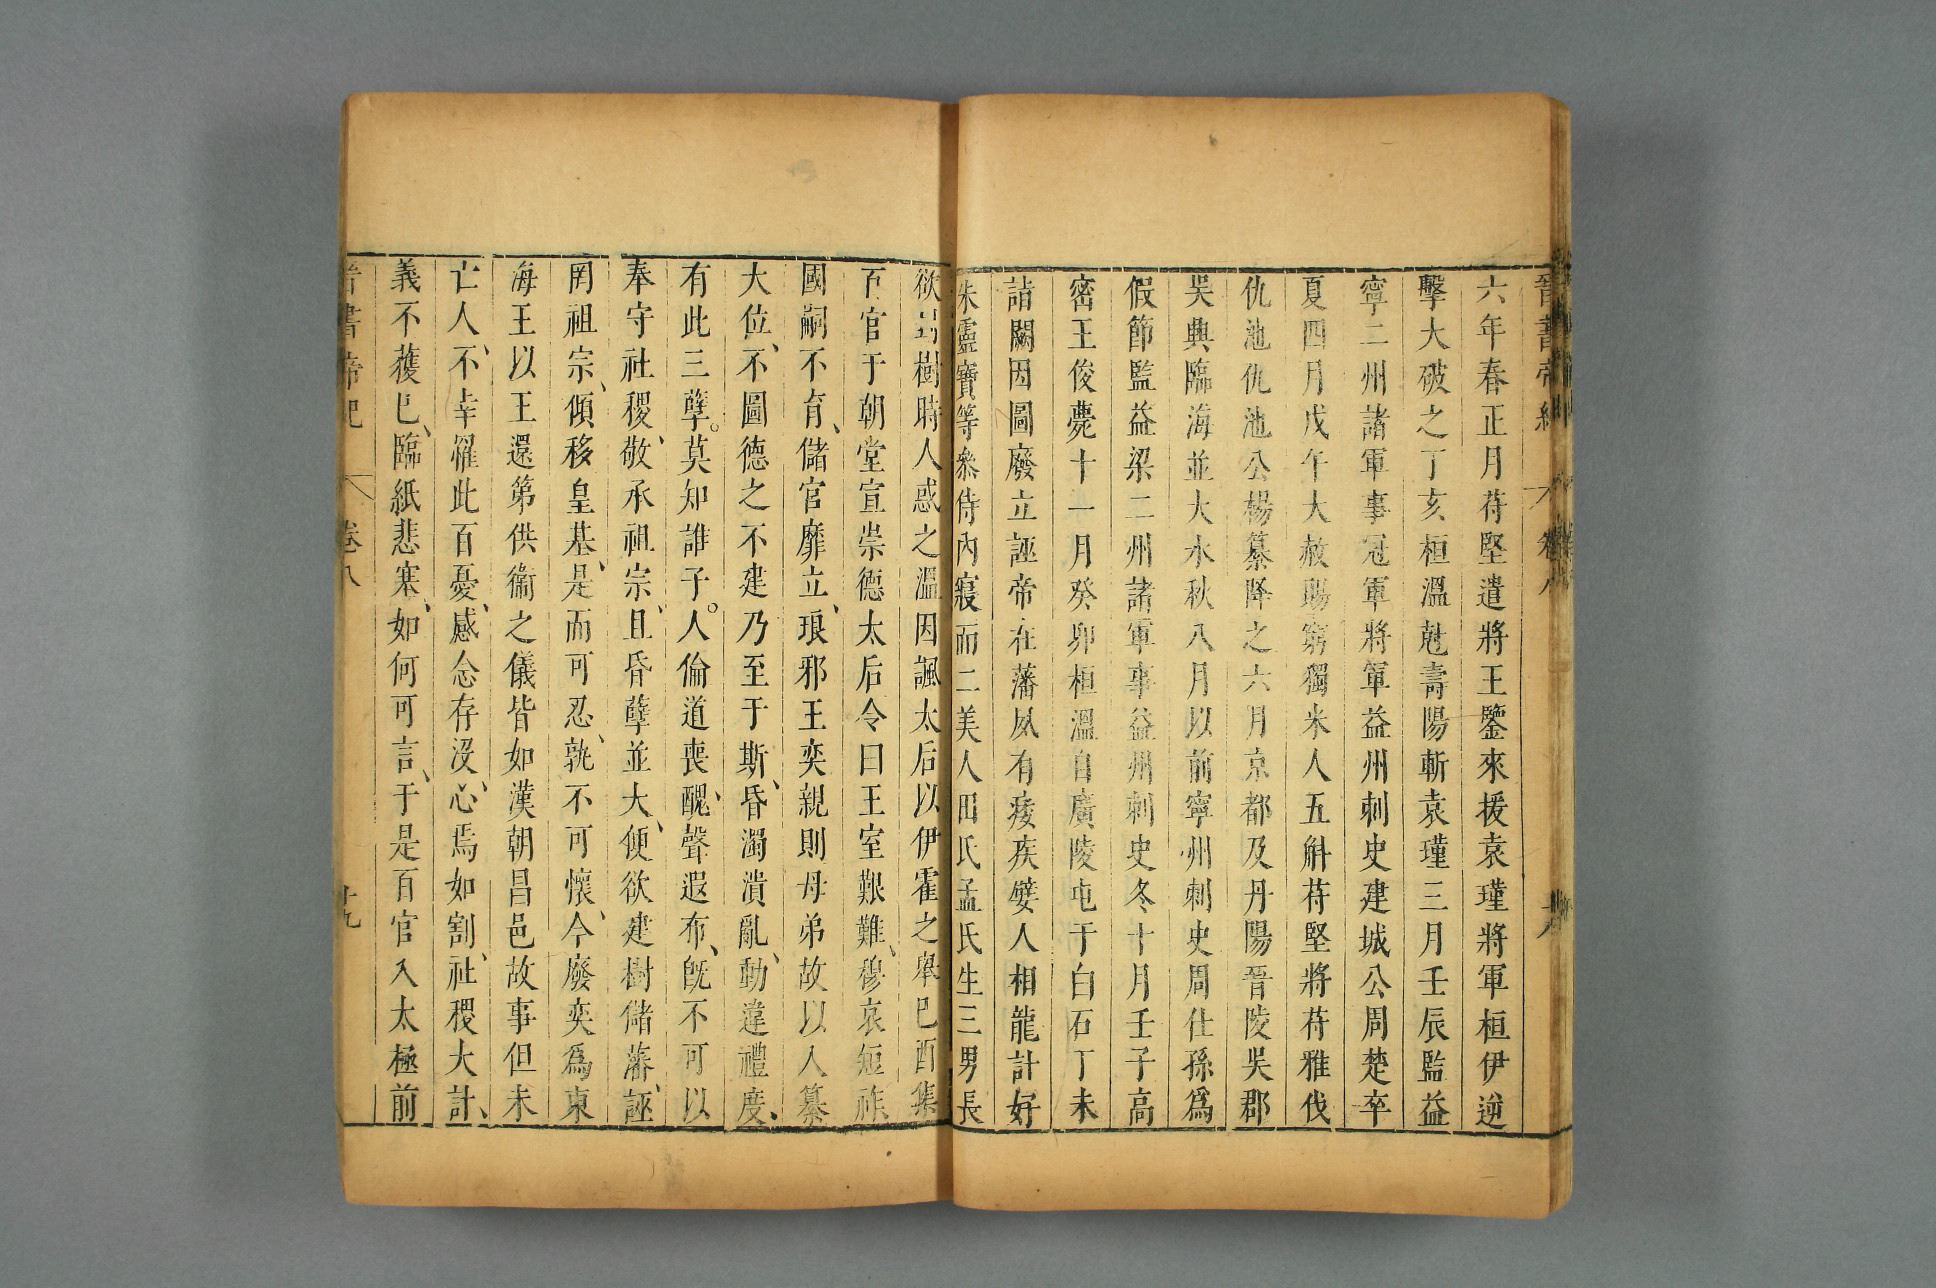 晉書帝紀 卷八 十八
六年春正月苻堅遣將王鑒來援袁瑾將軍桓伊逆
擊大破之丁亥桓溫剋壽陽斬袁瑾三月壬辰監益
寧二州諸軍事冠軍將軍益州刺史建城公周楚卒
夏四月戊午大赦賜窮獨米人五斛苻堅將苻雅伐
仇池仇池公楊纂降之六月京都及丹陽晉陵吳郡
吳興臨海並大水秋八月以前寧州刺史周仕孫爲
假節監益梁二州諸軍事益州刺史冬十月壬子高
密王俊薨十一月癸卯桓溫自廣陵屯于白石丁未
詣闕因圖廢立誣帝在藩夙有痿疾嬖人相龍計好
朱靈寶等參侍內寢而二美人田氏孟氏生三男長
欲封樹時人惑之溫因諷太后以伊霍之舉己酉集
百官于朝堂宣崇德太后令曰王室艱難、穆哀短祚
國嗣不育、儲宮靡立、琅邪王奕親則母弟故以入纂
大位、不圖德之不建乃至于斯、昏濁潰亂、動違禮度、
有此三孽。莫知誰子。人倫道喪、醜聲遐布、旣不可以
奉守社稷、敬承祖宗、且昏孽並大、便欲建樹儲藩、誣
罔祖宗、傾移皇基、是而可忍、孰不可懷、今廢奕爲東
海王以王還第供衞之儀皆如漢朝昌邑故事但未
亡人、不幸罹此百憂、感念存沒、心焉如割、社稷大計、
義不獲已、臨紙悲塞、如何可言、于是百官入太極前
晉書帝紀 卷八 十九